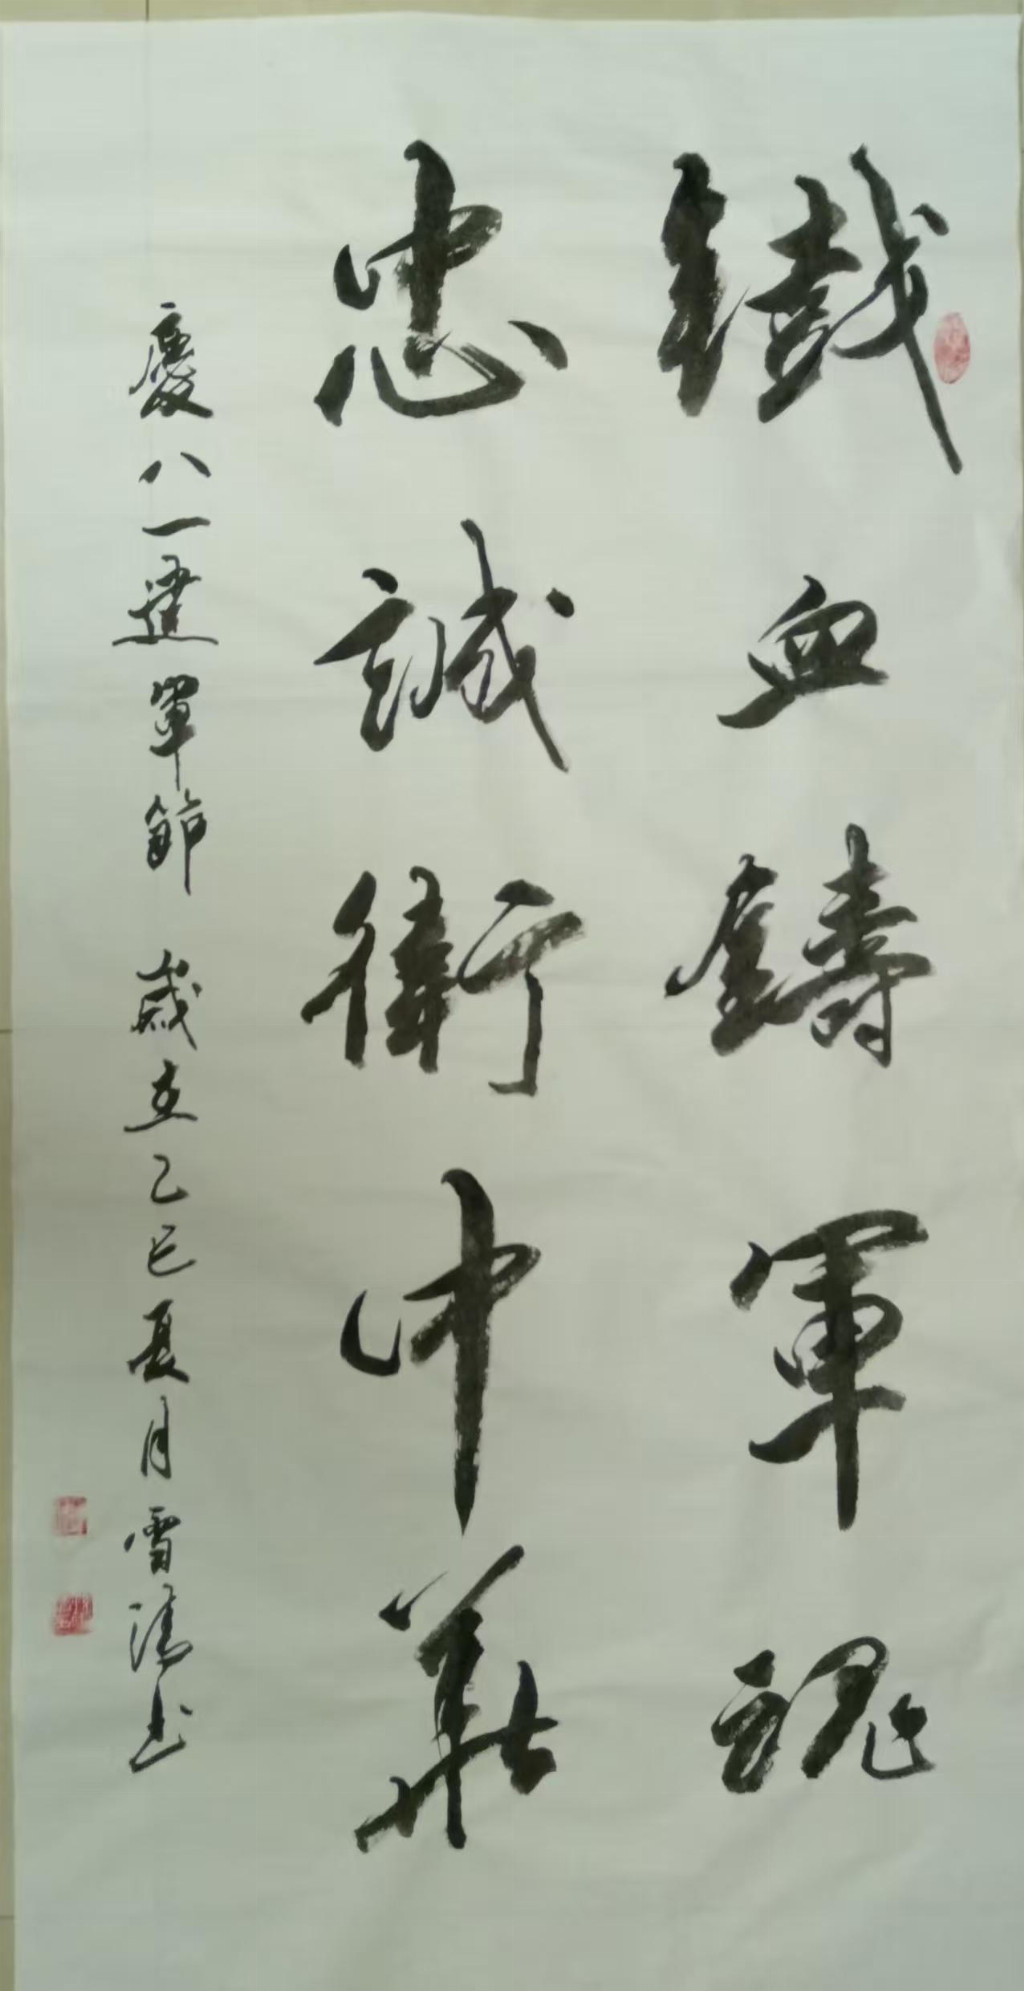 鐵血鑄軍魂
忠誠衛中華
慶八一建軍節 歲在乙巳夏月雪清书